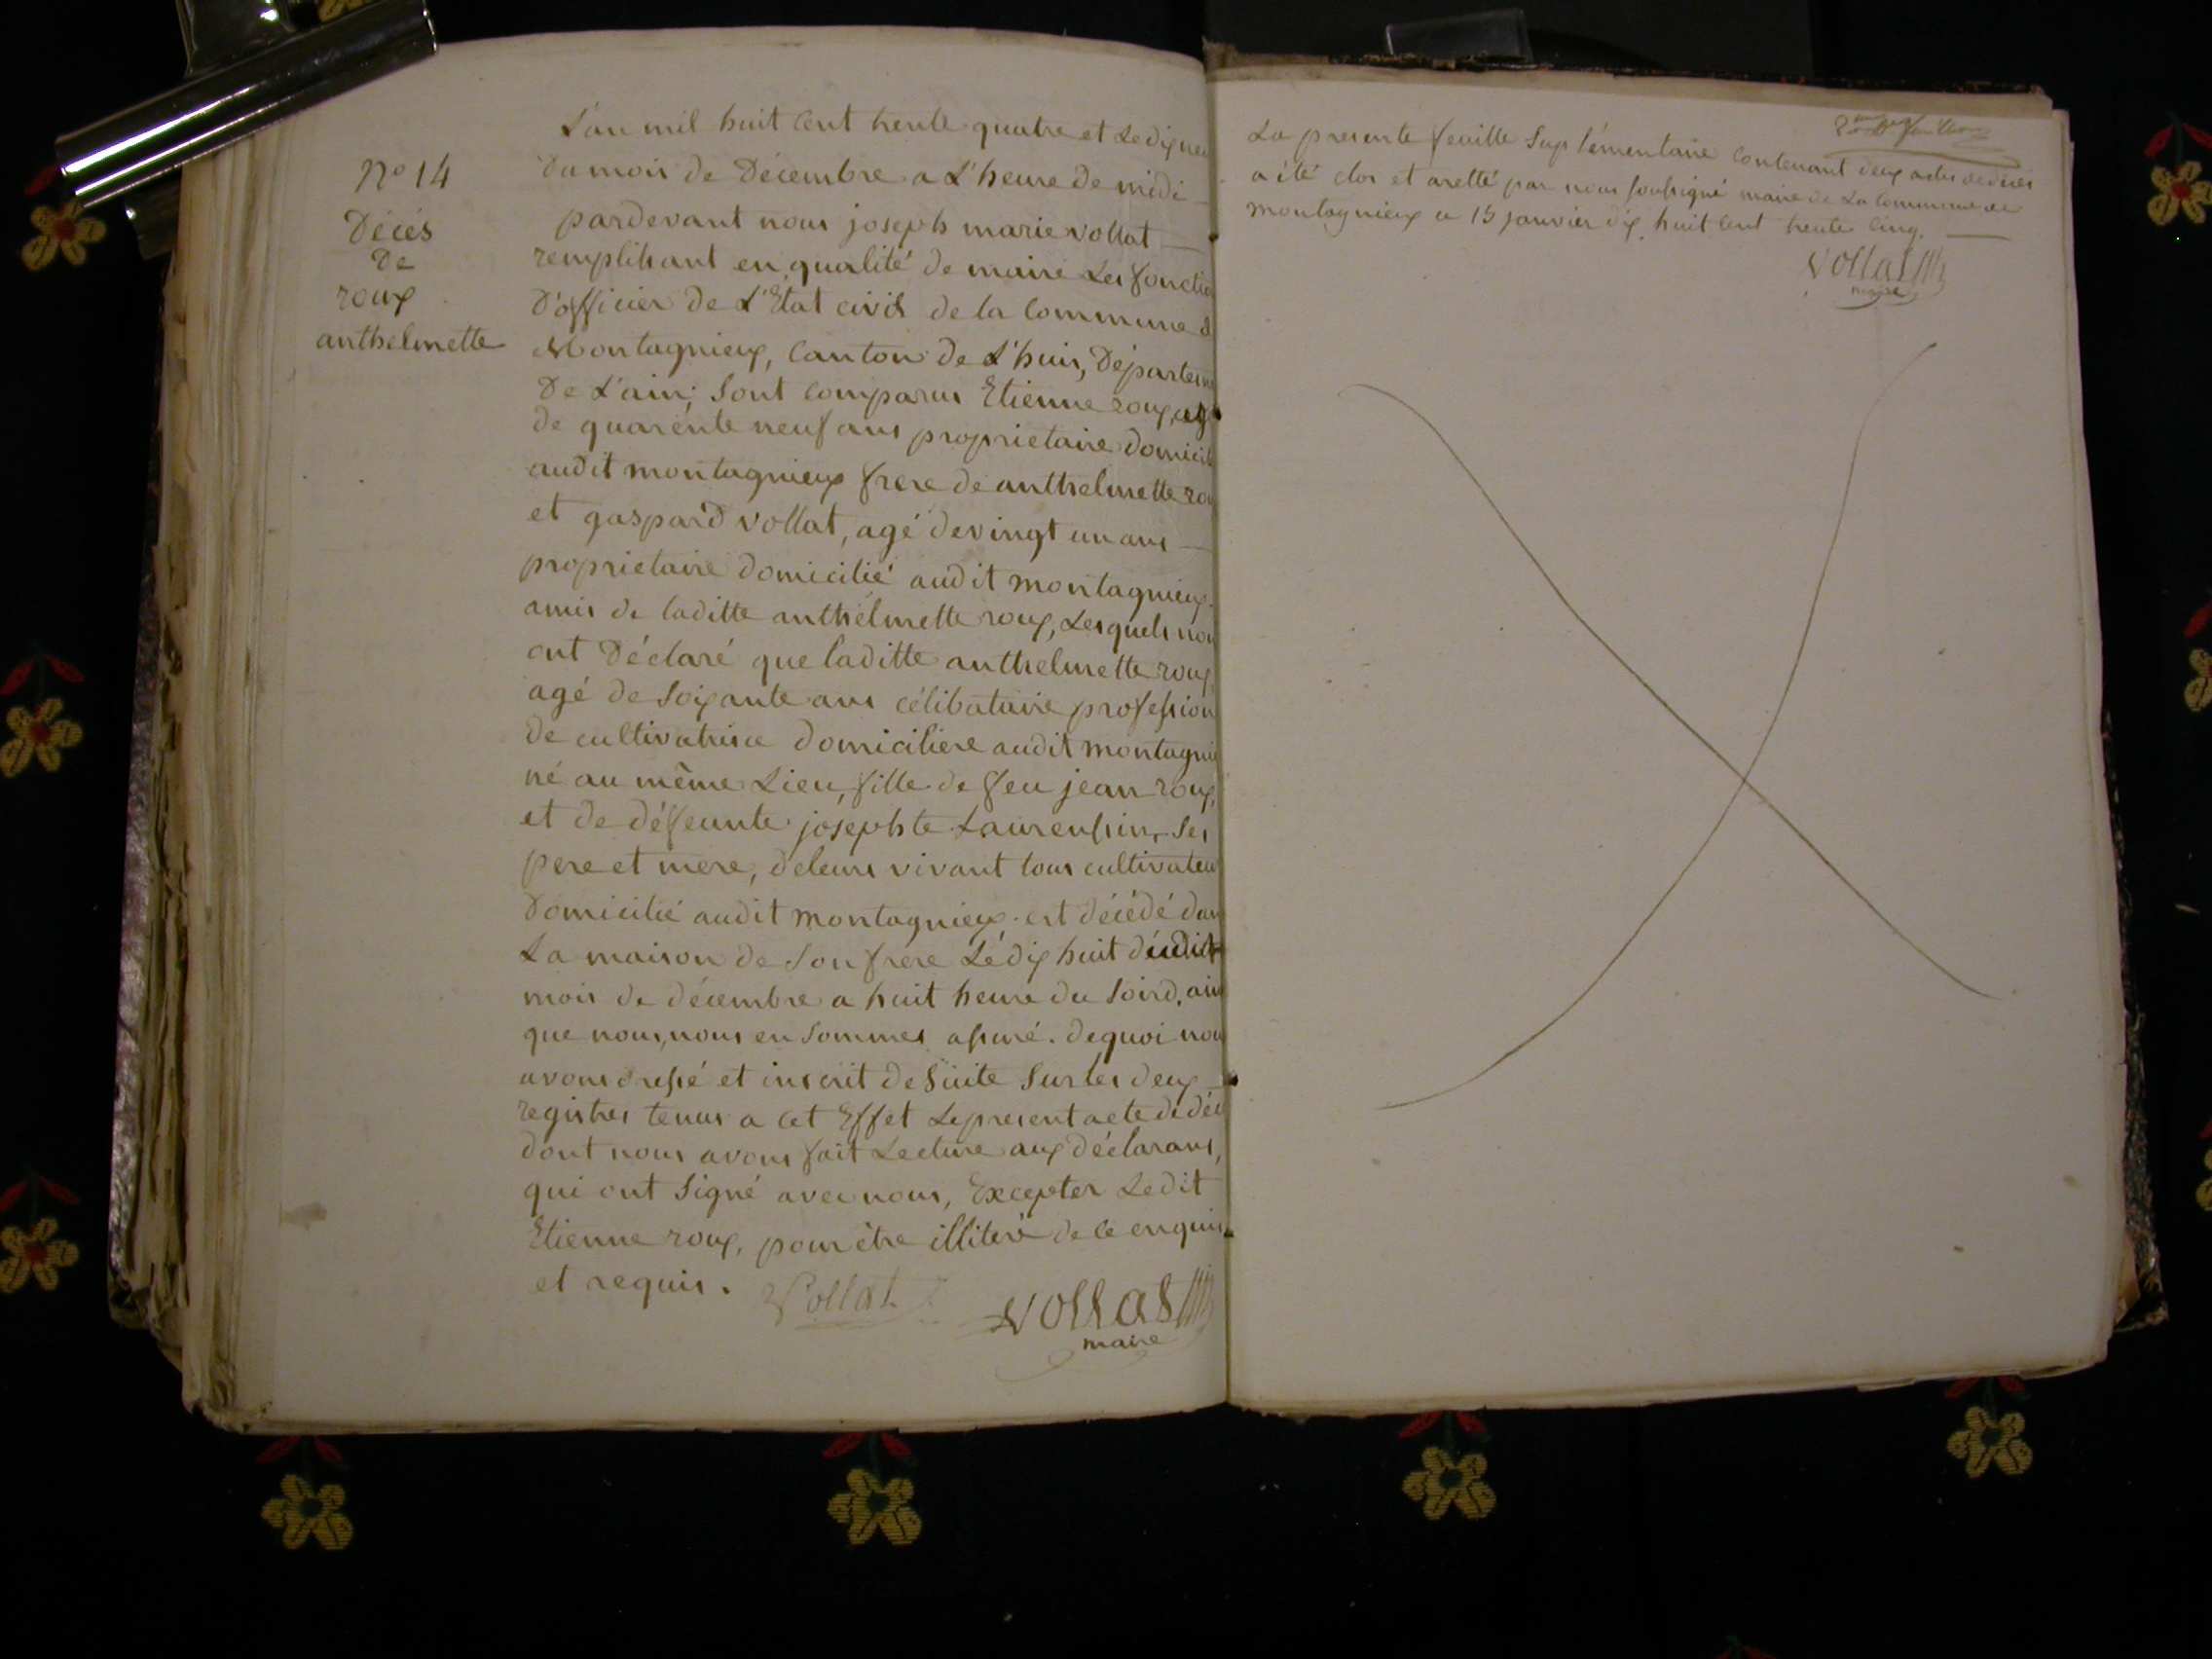 N° 14
Décés
De
roux
anthelmette
L'an mil huit cent trente quatre et Le dix neu
Du mois de Décembre a L'heure de midi
pardevant nous joseph marie vollat
remplissant en qualité de maire Les fonctio
D'officier de L'Etat civil de la commune d
Montagnieux, canton de L'huis, Départem
De L'ain; Sont comparus Etienne roux, ag
de quarente neuf ans proprietaire domicil
audit montagnieux frere de anthelmette rou
et gaspard vollat, agé de vingt un ans
proprietaire domicilié audit montagnieux
amis de laditte anthelmette roux, Lesquels nou
ont Déclaré que laditte anthelmette roux
agé de Soixante ans célibataire profession
de cultivatrice domiciliere audit montagnie
né au même Lieu, fille de feu jean roux,
et de défeunte josephte Laurensin, Ses
pere et mere, de leurs vivant tous cultivateu
Domicilié audit montagnieux, est décédé dan
La maison de Son frere Lé dix huit dudit
mois de décembre a huit heure du Soird, ain
que nous, nous en Sommes assuré. de quoi nou
avons dressé et inscrit de Suite Sur les deux
registres tenus a cet Effet Le present acte de déc
dont nous avons fait Lecture aux déclarans,
qui ont Signé avec nous, Excepter Ledit
Etienne roux, pour être illiteré de ce enquis
et requis. Vollat
vollat
maire
La presente feuille Suplémentaire contenant deux actes de décès
a été clos et aretté par nous soussigné maire de La commune de
montagnieux ce 15 janvier dix huit cent trente cinq.
vollat
maire